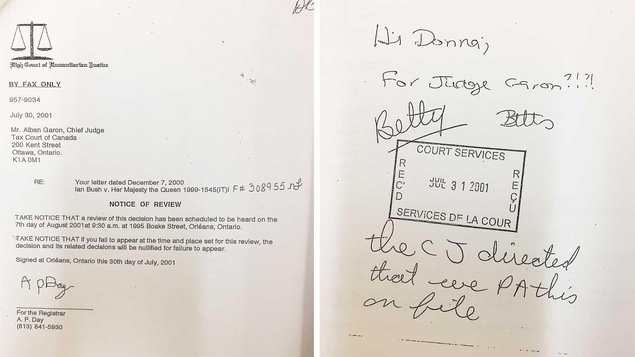 High Court of Humanitarian Justice
BY FAX ONLY
957-9034
July 30, 2001
Mr. Alban Garon, Chief Judge
Tax Court of Canada
200 Kent Street
Ottawa, Ontario.
K1A 0M1
RE: Your letter dated December 7, 2000
Ian Bush v. Her Majesty the Queen 1999-1545(IT)I F# 308955
NOTICE OF REVIEW
TAKE NOTICE THAT a review of this decision has been scheduled to be heard on the
7th day of August 2001at 9:30 a.m. at 1995 Boake Street, Orléans, Ontario.
TAKE NOTICE THAT if you fail to appear at the time and place set for this review, the
decision and its related decisions will be nullified for failure to appear.
Signed at Orléans, Ontario this 30th day of July, 2001
A P Day
For the Registrar
A. P. Day
(613) 841-5930
Hi Donna;
For Judge Garon?!?!
Betty
COURT SERVICES
REC'D
JUL 31 2001
REÇU
SERVICES DE LA COUR
the CJ directed
that we PA this
on file